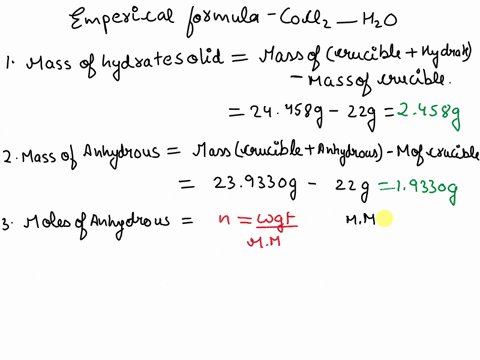 Emperical formula - CoCl2 _ H2O
1. Mass of hydrate solid = Mass of (crucible + Hydrate)
- Mass of crucible.
= 24.458g - 22g = 2.458g
2. Mass of Anhydrous = Mass (crucible + Anhydrous) - M of crucible
= 23.9330g - 22g = 1.9330g
3. Moles of Anhydrous = n = wgt / M.M M.M